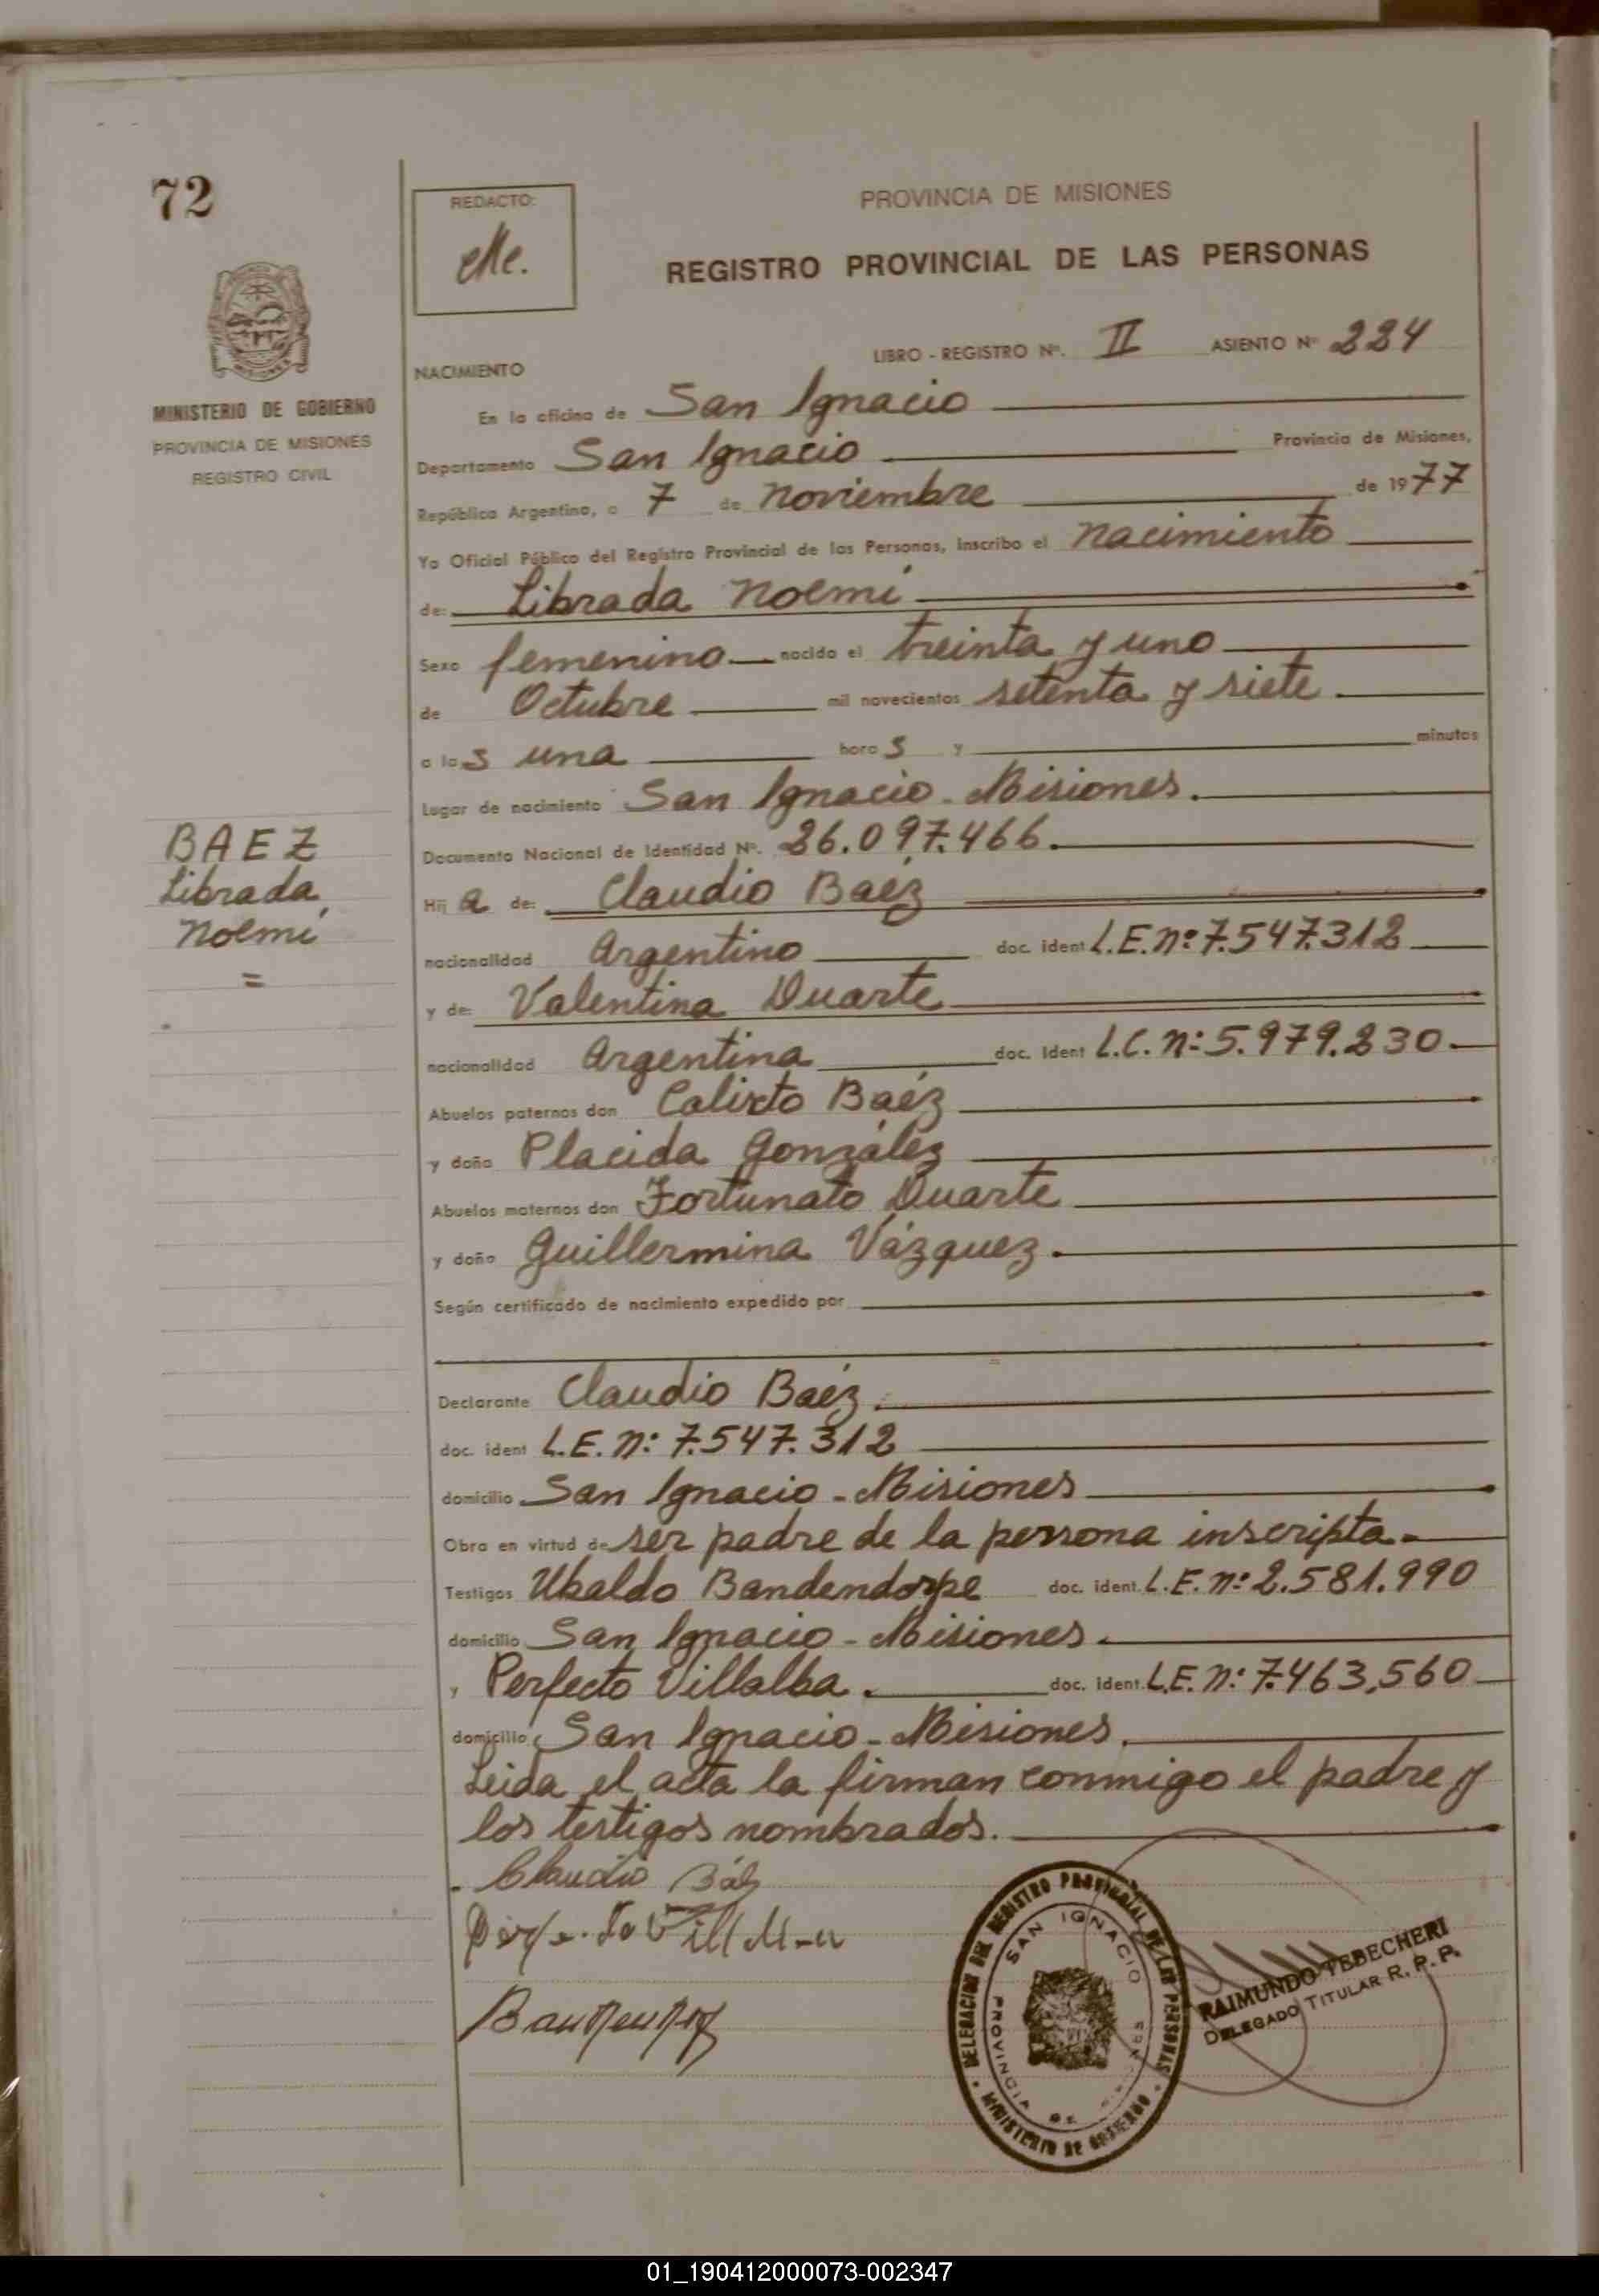 72
REDACTO:
PROVINCIA DE MISIONES
REGISTRO PROVINCIAL DE LAS PERSONAS
MISIONES
MINISTERIO DE GOBIERNO
PROVINCIA DE MISIONES
REGISTRO CIVIL
LIBRO - REGISTRO Nº. II ASIENTO Nº 224
NACIMIENTO
En la oficina de San Ignacio
Departamento San Ignacio Provincia de Misiones,
República Argentina, a 7 de noviembre de 1977
Yo Oficial Público del Registro Provincial de las Personas, inscribo el nacimiento
de: Librada Noemí
Sexo femenino nacido el treinta y uno
de Octubre mil novecientos setenta y siete
a las una horas y minutos
Lugar de nacimiento San Ignacio - Misiones.
Documento Nacional de Identidad Nº. 26.097.466.
BAEZ
Librada
Noemí
=
Hija de: Claudio Baéz
nacionalidad Argentino doc. ident L.E. nº 7.547.312
y de: Valentina Duarte
nacionalidad Argentina doc. ident L.C. nº 5.979.230
Abuelos paternos don Calixto Baéz
y doña Placida González
Abuelos maternos don Fortunato Duarte
y doña Guillermina Vázquez.
Según certificado de nacimiento expedido por
Declarante Claudio Baéz.
doc. ident L.E. nº 7.547.312
domicilio San Ignacio - Misiones
Obra en virtud de ser padre de la persona inscripta.
Testigos Ubaldo Bandendorpe doc. ident. L.E. nº 2.581.990
domicilio San Ignacio - Misiones.
y Perfecto Villalba. doc. ident. L.E. nº 7.463.560
domicilio San Ignacio - Misiones.
Leida el acta la firman conmigo el padre y
los testigos nombrados.
Claudio Báez
DELEGACION DEL REGISTRO PROVINCIAL DE LAS PERSONAS
SAN IGNACIO
PROVINCIA DE MISIONES
MINISTERIO DE GOBIERNO
RAIMUNDO TEBECHERI
DELEGADO TITULAR R. P. P.
01_190412000073-002347